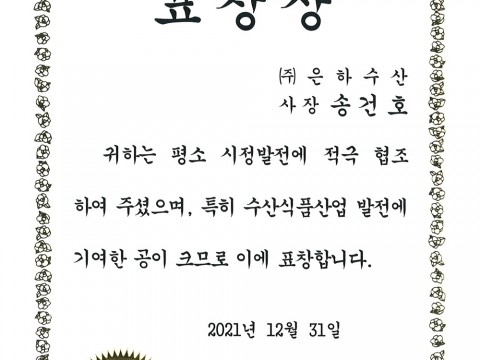 표창장
㈜ 은하수산
사장 송건호
귀하는 평소 시정발전에 적극 협조
하여 주셨으며, 특히 수산식품산업 발전에
기여한 공이 크므로 이에 표창합니다.
2021년 12월 31일